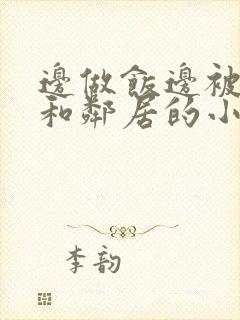 邊做飯邊被
和鄰居的小
李韵